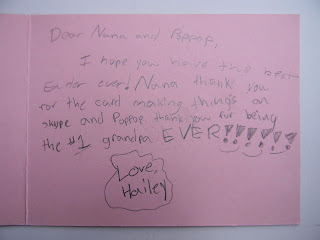 Dear Nana and Poppop,
I hope you have the best
Easter ever! Nana thank you
for the card making things on
skype and Poppop thank you for being
the #1 grandpa EVER!!!!!!
Love,
Hailey